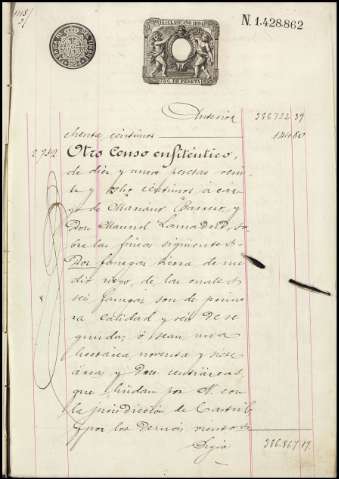 N. 1.428.862
Anterior 386.722.39
chenta céntimos 144.80
2,742 Otro Censo enfitéutico,
de diez y nueve pesetas vein
te y ocho céntimos á car
go de Mariano y
Don Manuel sо
bre las fincas siguientes
Dos fanegas tierra de me
dio riego, de las cuales
seis fanegas son de prime
ra calidad y seis de se
gunda, ó sean una
hectárea noventa y siete
áreas y Dos centiáreas,
que lindan por N. con
la jurisdicción de
y por los Demás vientos
Sigue 386.867.19